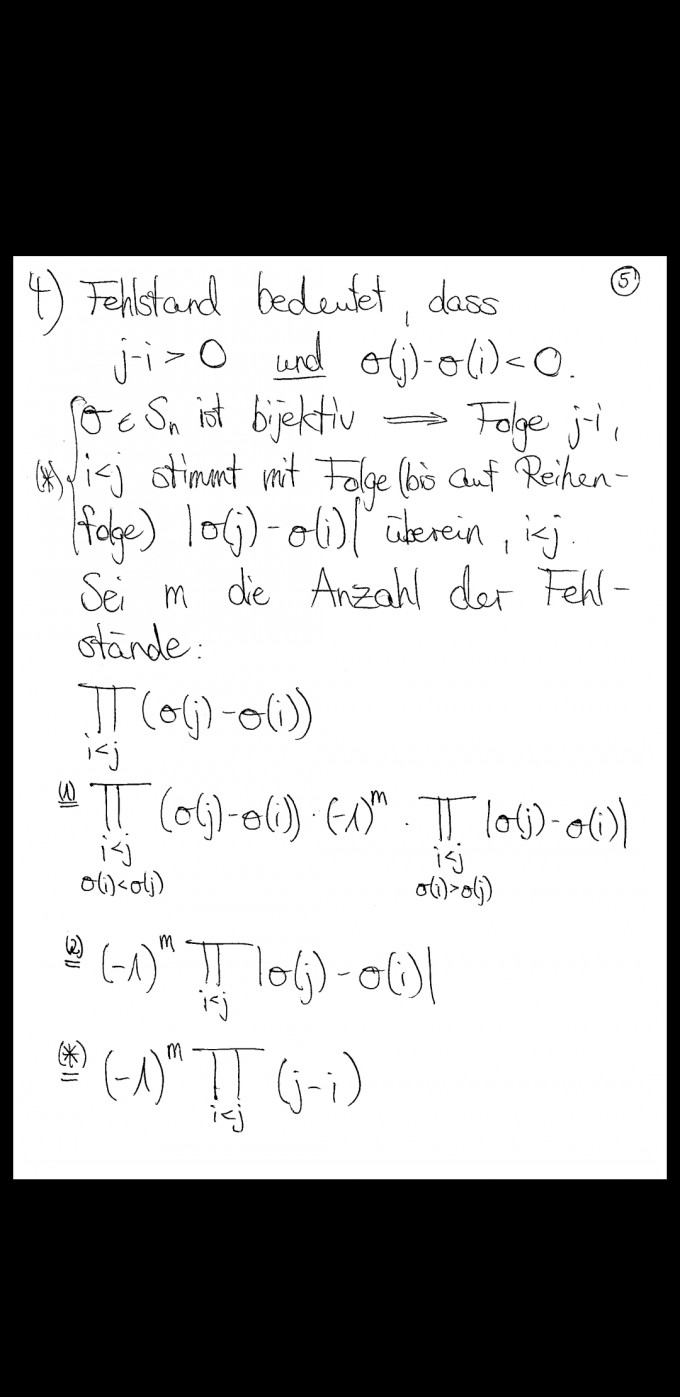 4) Fehlstand bedeutet, dass
⑤
j-i > 0 und σ(j)-σ(i) < 0.
σ ∈ Sₙ ist bijektiv ⟹ Folge j-i,
(*) i<j stimmt mit Folge (bis auf Reihen-
folge) |σ(j) - σ(i)| überein, i<j.
Sei m die Anzahl der Fehl-
stände:
∏ (σ(j) - σ(i))
i<j
(1) = ∏ (σ(j)-σ(i)) · (-1)^m · ∏ |σ(j) - σ(i)|
i<j i<j
σ(i)<σ(j) σ(i)>σ(j)
(2) = (-1)^m ∏ |σ(j) - σ(i)|
i<j
(*) = (-1)^m ∏ (j-i)
i<j